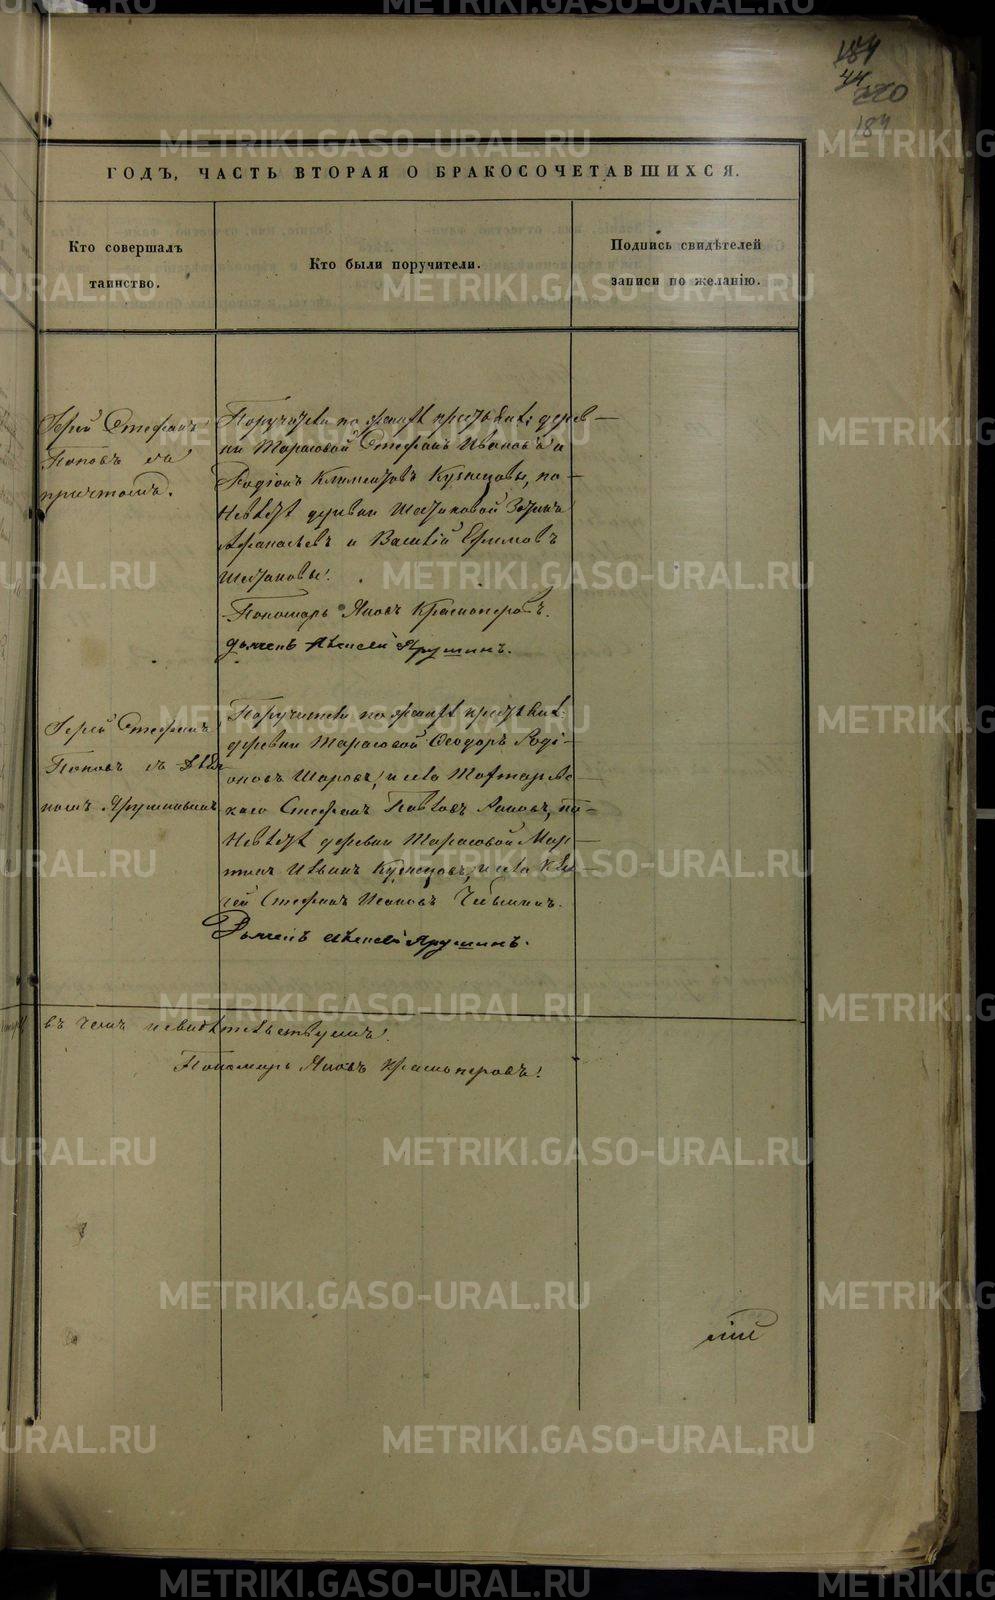 184
44
220
184
ГОДЪ, ЧАСТЬ ВТОРАЯ О БРАКОСОЧЕТАВШИХСЯ.
Кто совершалъ
таинство.
Кто были поручители.
Подпись свидѣтелей
записи по желанію.
Іерей Стефанъ
Поповъ съ
причтомъ.
Поручители по женихѣ крестьяне: дерев
ни Тарасовой Стефанъ Ивановъ и
Родіонъ Климентовъ Кузнецовы, по
невѣстѣ деревни Шестаковой
Афанасьевъ и Василій Ефимовъ
Шестаковы.
Пономарь Яковъ Красноперовъ.
Дьячекъ Алексей Ярушинъ.
Іерей Стефанъ
Поповъ съ дьяч
комъ Ярушинымъ
Поручители по женихѣ крестьяне:
деревни Тарасовой Ѳеодоръ Роді
оновъ Шаровъ, и села
каго Стефанъ Павловъ по
невѣстѣ деревни Тарасовой Мар
тинъ Ивановъ Кузнецовъ, и села
Стефанъ Ивановъ
Дьячекъ Алексей Ярушинъ.
въ чемъ и свидѣтельствуемъ.
Пономарь Яковъ Красноперовъ.
METRIKI.GASO-URAL.RU